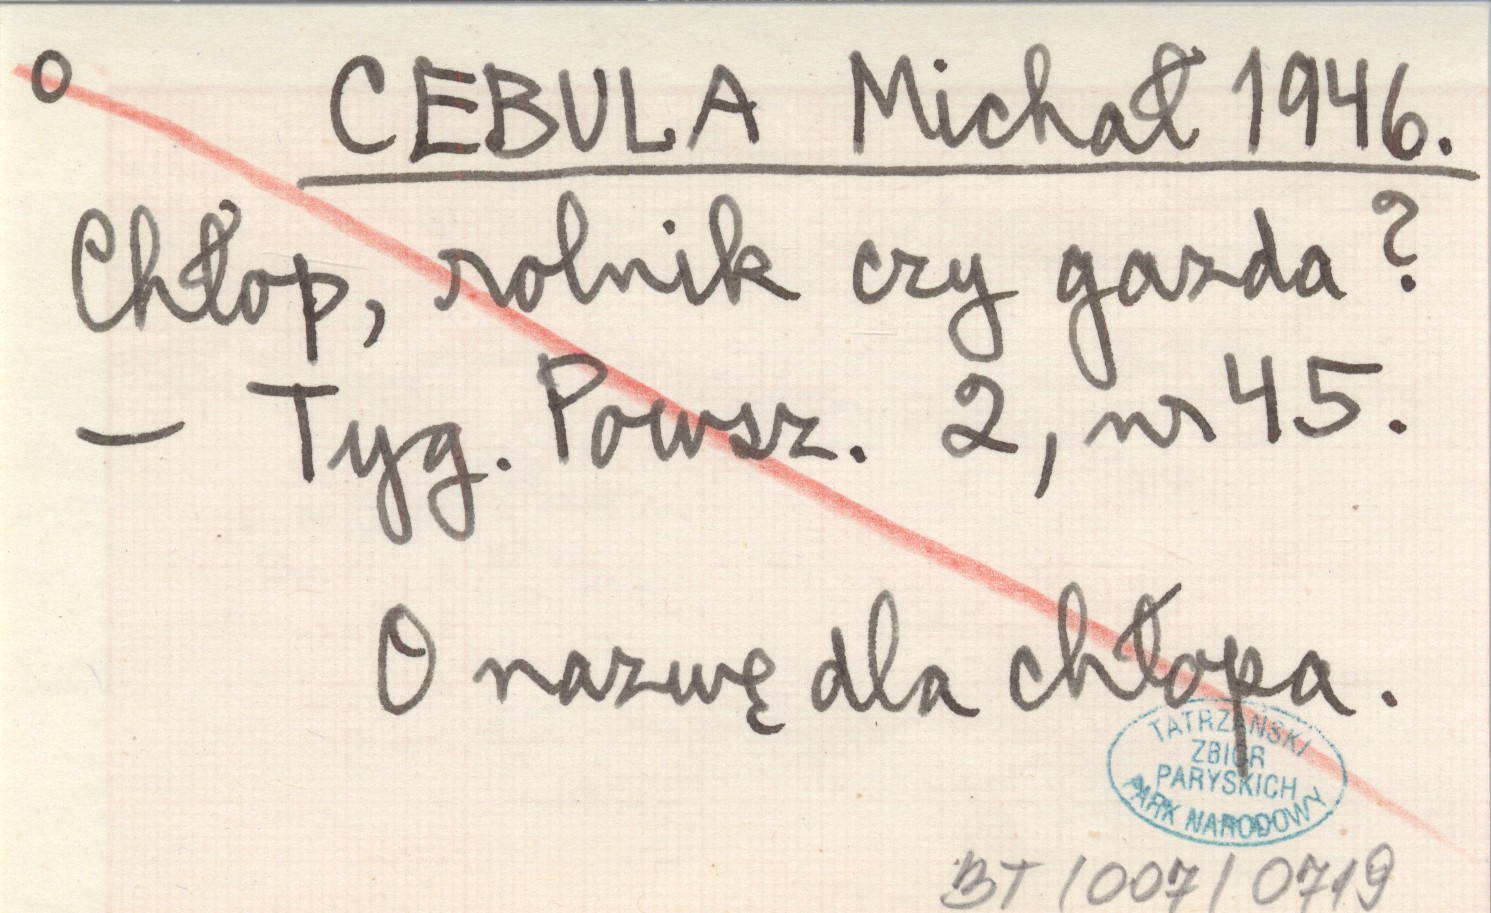 o CEBULA Michał 1946.
Chłop, rolnik czy gazda?
— Tyg. Powsz. 2, nr 45.
O nazwę dla chłopa.
TATRZAŃSKI
ZBIÓR
PARYSKICH
PARK NARODOWY
BT/007/0719